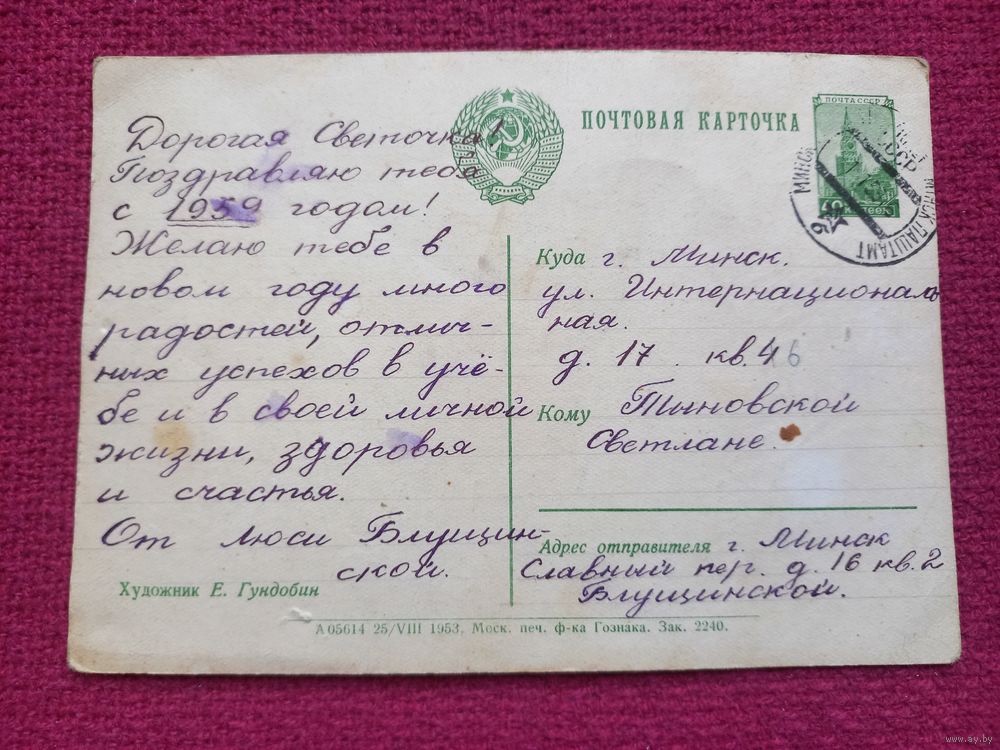 ПОЧТОВАЯ КАРТОЧКА
ПОЧТА СССР
40 КОПЕЕК
МИНСК ПАШТАМТ
МИНСК
Дорогая Светочка!
Поздравляю тебя
с 1959 годом!
Желаю тебе в
новом году много
радостей, отлич-
ных успехов в учё-
бе и в своей личной
жизни, здоровья
и счастья.
От Люси Блущин-
ской.
Художник Е. Гундобин
Куда г. Минск.
ул. Интернациональ
ная.
д. 17 . кв. 46
Кому Тыновской
Светлане.
Адрес отправителя г. Минск
Славный пер. д. 16 кв. 2
Блущинской.
А 05614 25/VIII 1953. Моск. печ. ф-ка Гознака. Зак. 2240.
www.ay.by